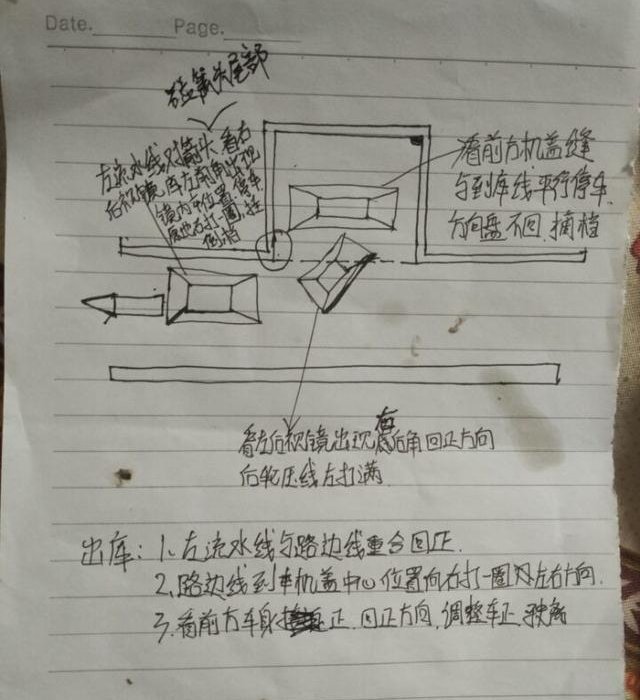 Date. Page.
箭头尾部
左流水线对箭头 看右
后视镜,再左前角出现
镜内下位置停车
原地右打一圈,挂
倒档
看前方机盖缝
与到库线平行停车
方向盘不回.摘档
看左后视镜出现右后角回正方向
后轮压线左打满
出库:1、左流水线与路边线重合回正.
2、路边线到车机盖中心位置向右打一圈 左右方向.
3、看前方车身 正.回正方向,调整车正.驶离